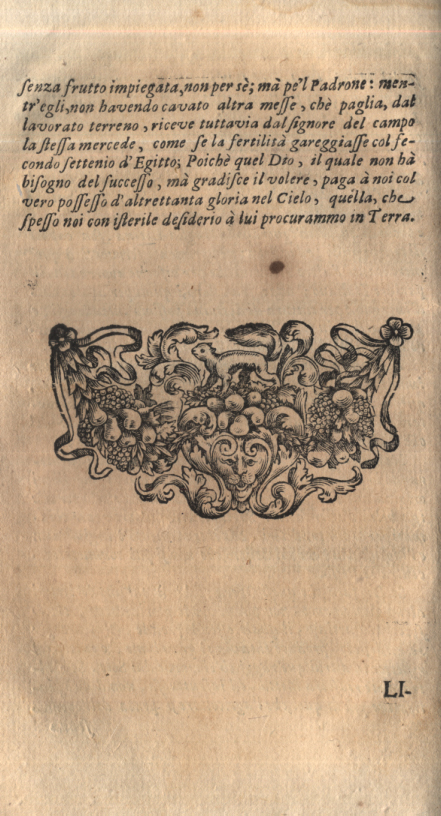 ſenza frutto impiegata, non per sè; mà pe'l Padrone: men-
tr'egli, non havendo cavato altra meſſe, chè paglia, dal
lavorato terreno, riceve tuttavia dal ſignore del campo
la ſteſſa mercede, come ſe la fertilità gareggiaſſe col ſe-
condo ſettenio d'Egitto; Poichè quel Dio, il quale non hà
biſogno del ſucceſſo, mà gradiſce il volere, paga à noi col
vero poſſeſſo d'altrettanta gloria nel Cielo, quella, che
ſpeſſo noi con iſterile deſiderio à lui procurammo in Terra.
LI-